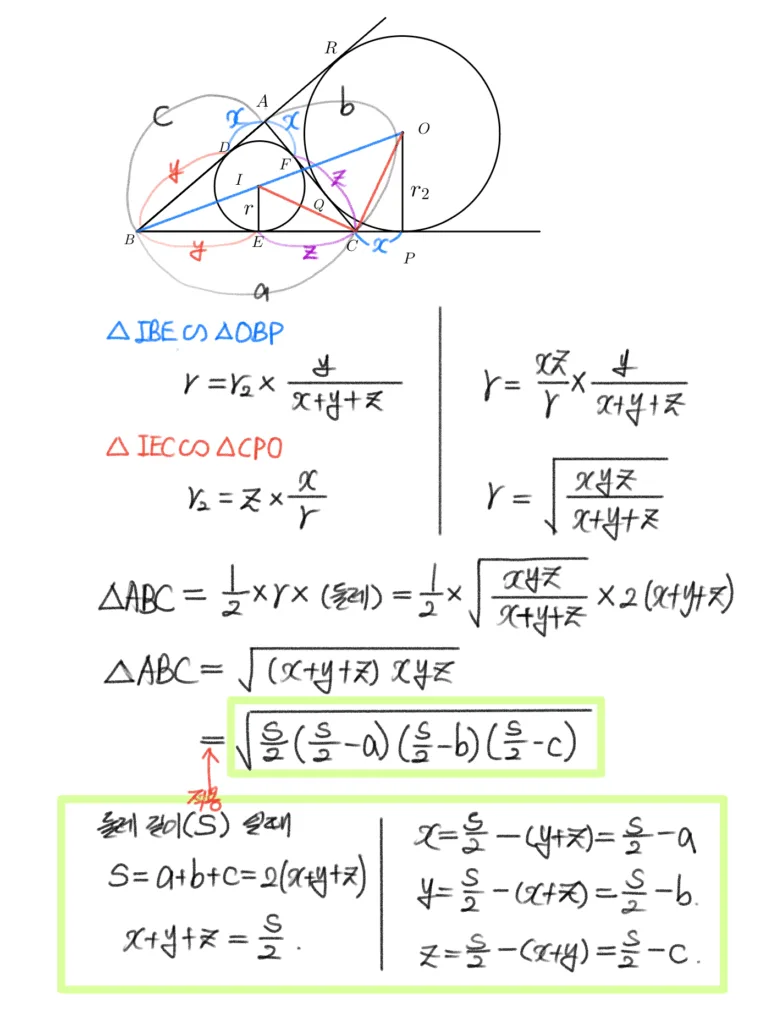 R
c
A
b
x
x
O
D
y
F
z
I
r
Q
r₂
B
E
C
y
z
x
P
a
△IBE∽△OBP
r = r₂ × y/(x+y+z)
r = xz/r × y/(x+y+z)
△IEC∽△CPO
r₂ = z × x/r
r = √(xyz/(x+y+z))
△ABC = 1/2 × r × (둘레) = 1/2 × √(xyz/(x+y+z)) × 2(x+y+z)
△ABC = √((x+y+z) xyz)
= √(S/2 (S/2 - a)(S/2 - b)(S/2 - c))
적용
둘레 길이(S) 일때
S = a+b+c = 2(x+y+z)
x+y+z = S/2 .
x = S/2 - (y+z) = S/2 - a
y = S/2 - (x+z) = S/2 - b.
z = S/2 - (x+y) = S/2 - c .